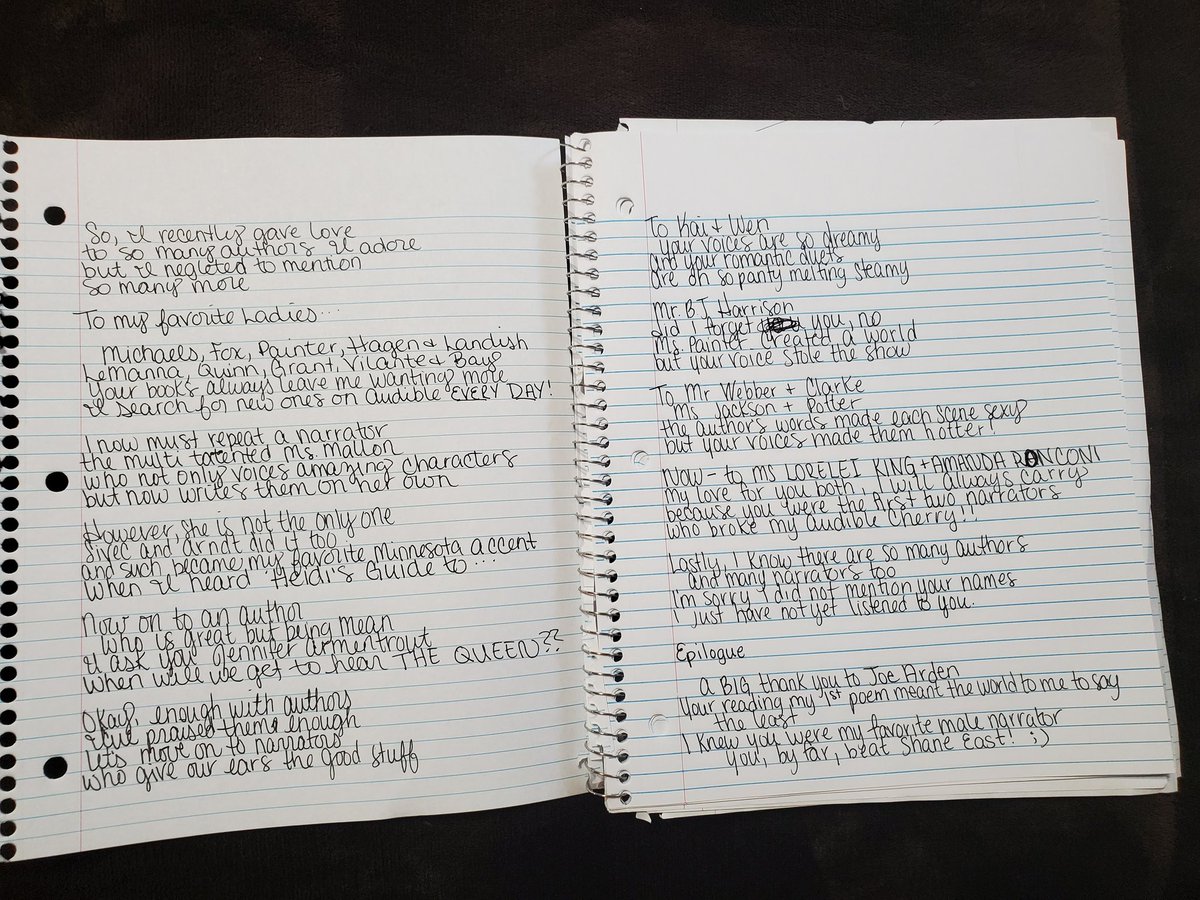 So, I recently gave love
to so many authors I adore
but I negleted to mention
so many more
To my favorite Ladies...
Michaels, Fox, Painter, Hagen & Landish
LeManna, Quinn, Grant, Vilante & Bay
your books always leave me wanting more
I search for new ones on audible EVERY DAY!
I now must repeat a narrator
the multi talented ms. mallon
who not only voices amazing characters
but now writes them on her own
However, she is not the only one
Sivec and arnat did it too
and such became my favorite Minnesota accent
when I heard "Heidi's Guide to"...
Now on to an author
who is great but being mean
I ask you Jennifer armentrout
when will we get to hear THE QUEEN??
Okay, enough with authors
I've praised them enough
Lets move on to narrators
who give our ears the good stuff
To Kai + Wen
your voices are so dreamy
and your romantic duets
are oh so panty melting steamy
Mr. BJ Harrison
did I forget you, no
Ms Painter created a world
but your voice stole the show
To Mr Webber + Clarke
Ms Jackson + Potter
the authors words made each scene sexy
but your voices made them hotter!
Now - to MS LORELEI KING + AMANDA RONCONI
my love for you both, I will always carry
because you were the first two narrators
who broke my audible cherry!!
Lastly, I know there are so many authors
and many narrators too
I'm sorry I did not mention your names
just have not yet listened to you.
Epilogue
a BIG thank you to Joe Arden
Your reading my 1st poem meant the world to me to say
the least
I knew you were my favorite male narrator
you, by far, beat Shane East! ;)